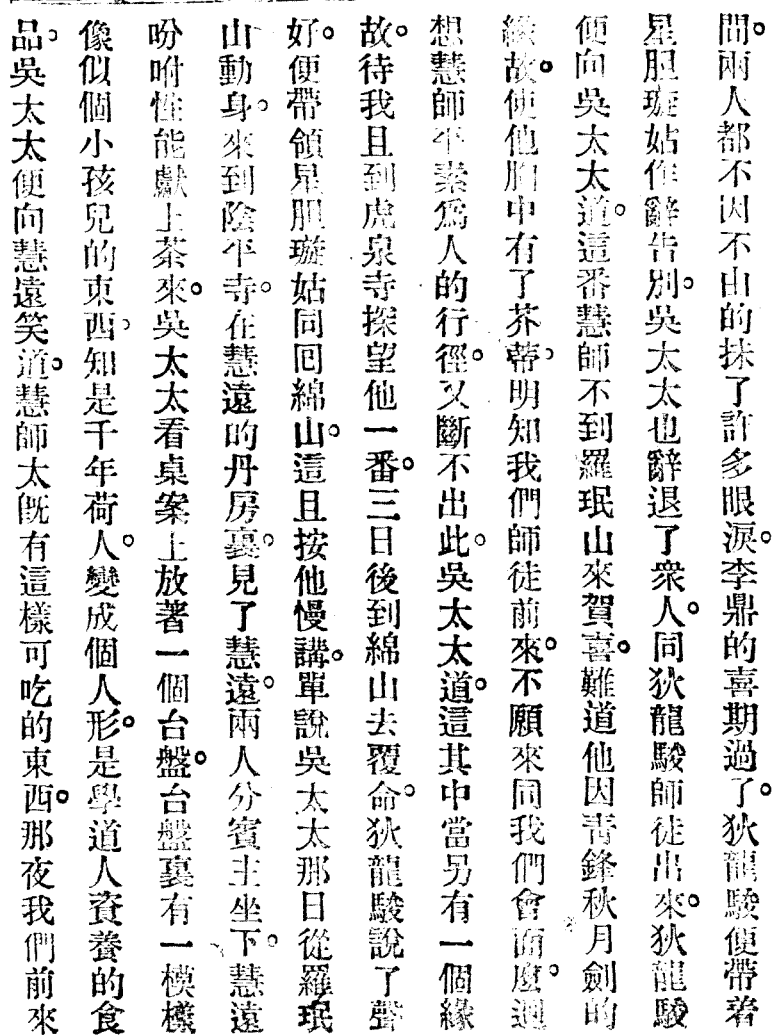 間。兩人都不因不由的抹了許多眼淚。李鼎的喜期過了。狄龍駿便帶着
星胆璇姑作辭告別。吳太太也辭退了衆人。同狄龍駿師徒出來。狄龍駿
便向吳太太道。這番慧師不到羅珉山來賀喜。難道他因青鋒秋月劍的
緣故。使他胸中有了芥蒂。明知我們師徒前來。不願來同我們會面麼。迴
想慧師平素爲人的行徑。又斷不出此。吳太太道。這其中當另有一個緣
故。待我且到虎泉寺探望他一番。三日後到綿山去覆命。狄龍駿說了聲
好。便帶領星胆璇姑同囘綿山。這且按他慢講。單說吳太太那日從羅珉
山動身。來到陰平寺。在慧遠的丹房裏。見了慧遠。兩人分賓主坐下。慧遠
吩咐性能獻上茶來。吳太太看桌案上放著一個台盤。台盤裏有一模樣
像似個小孩兒的東西。知是千年荷人。變成個人形。是學道人資養的食
品。吳太太便向慧遠笑道。慧師太旣有這樣可吃的東西。那夜我們前來